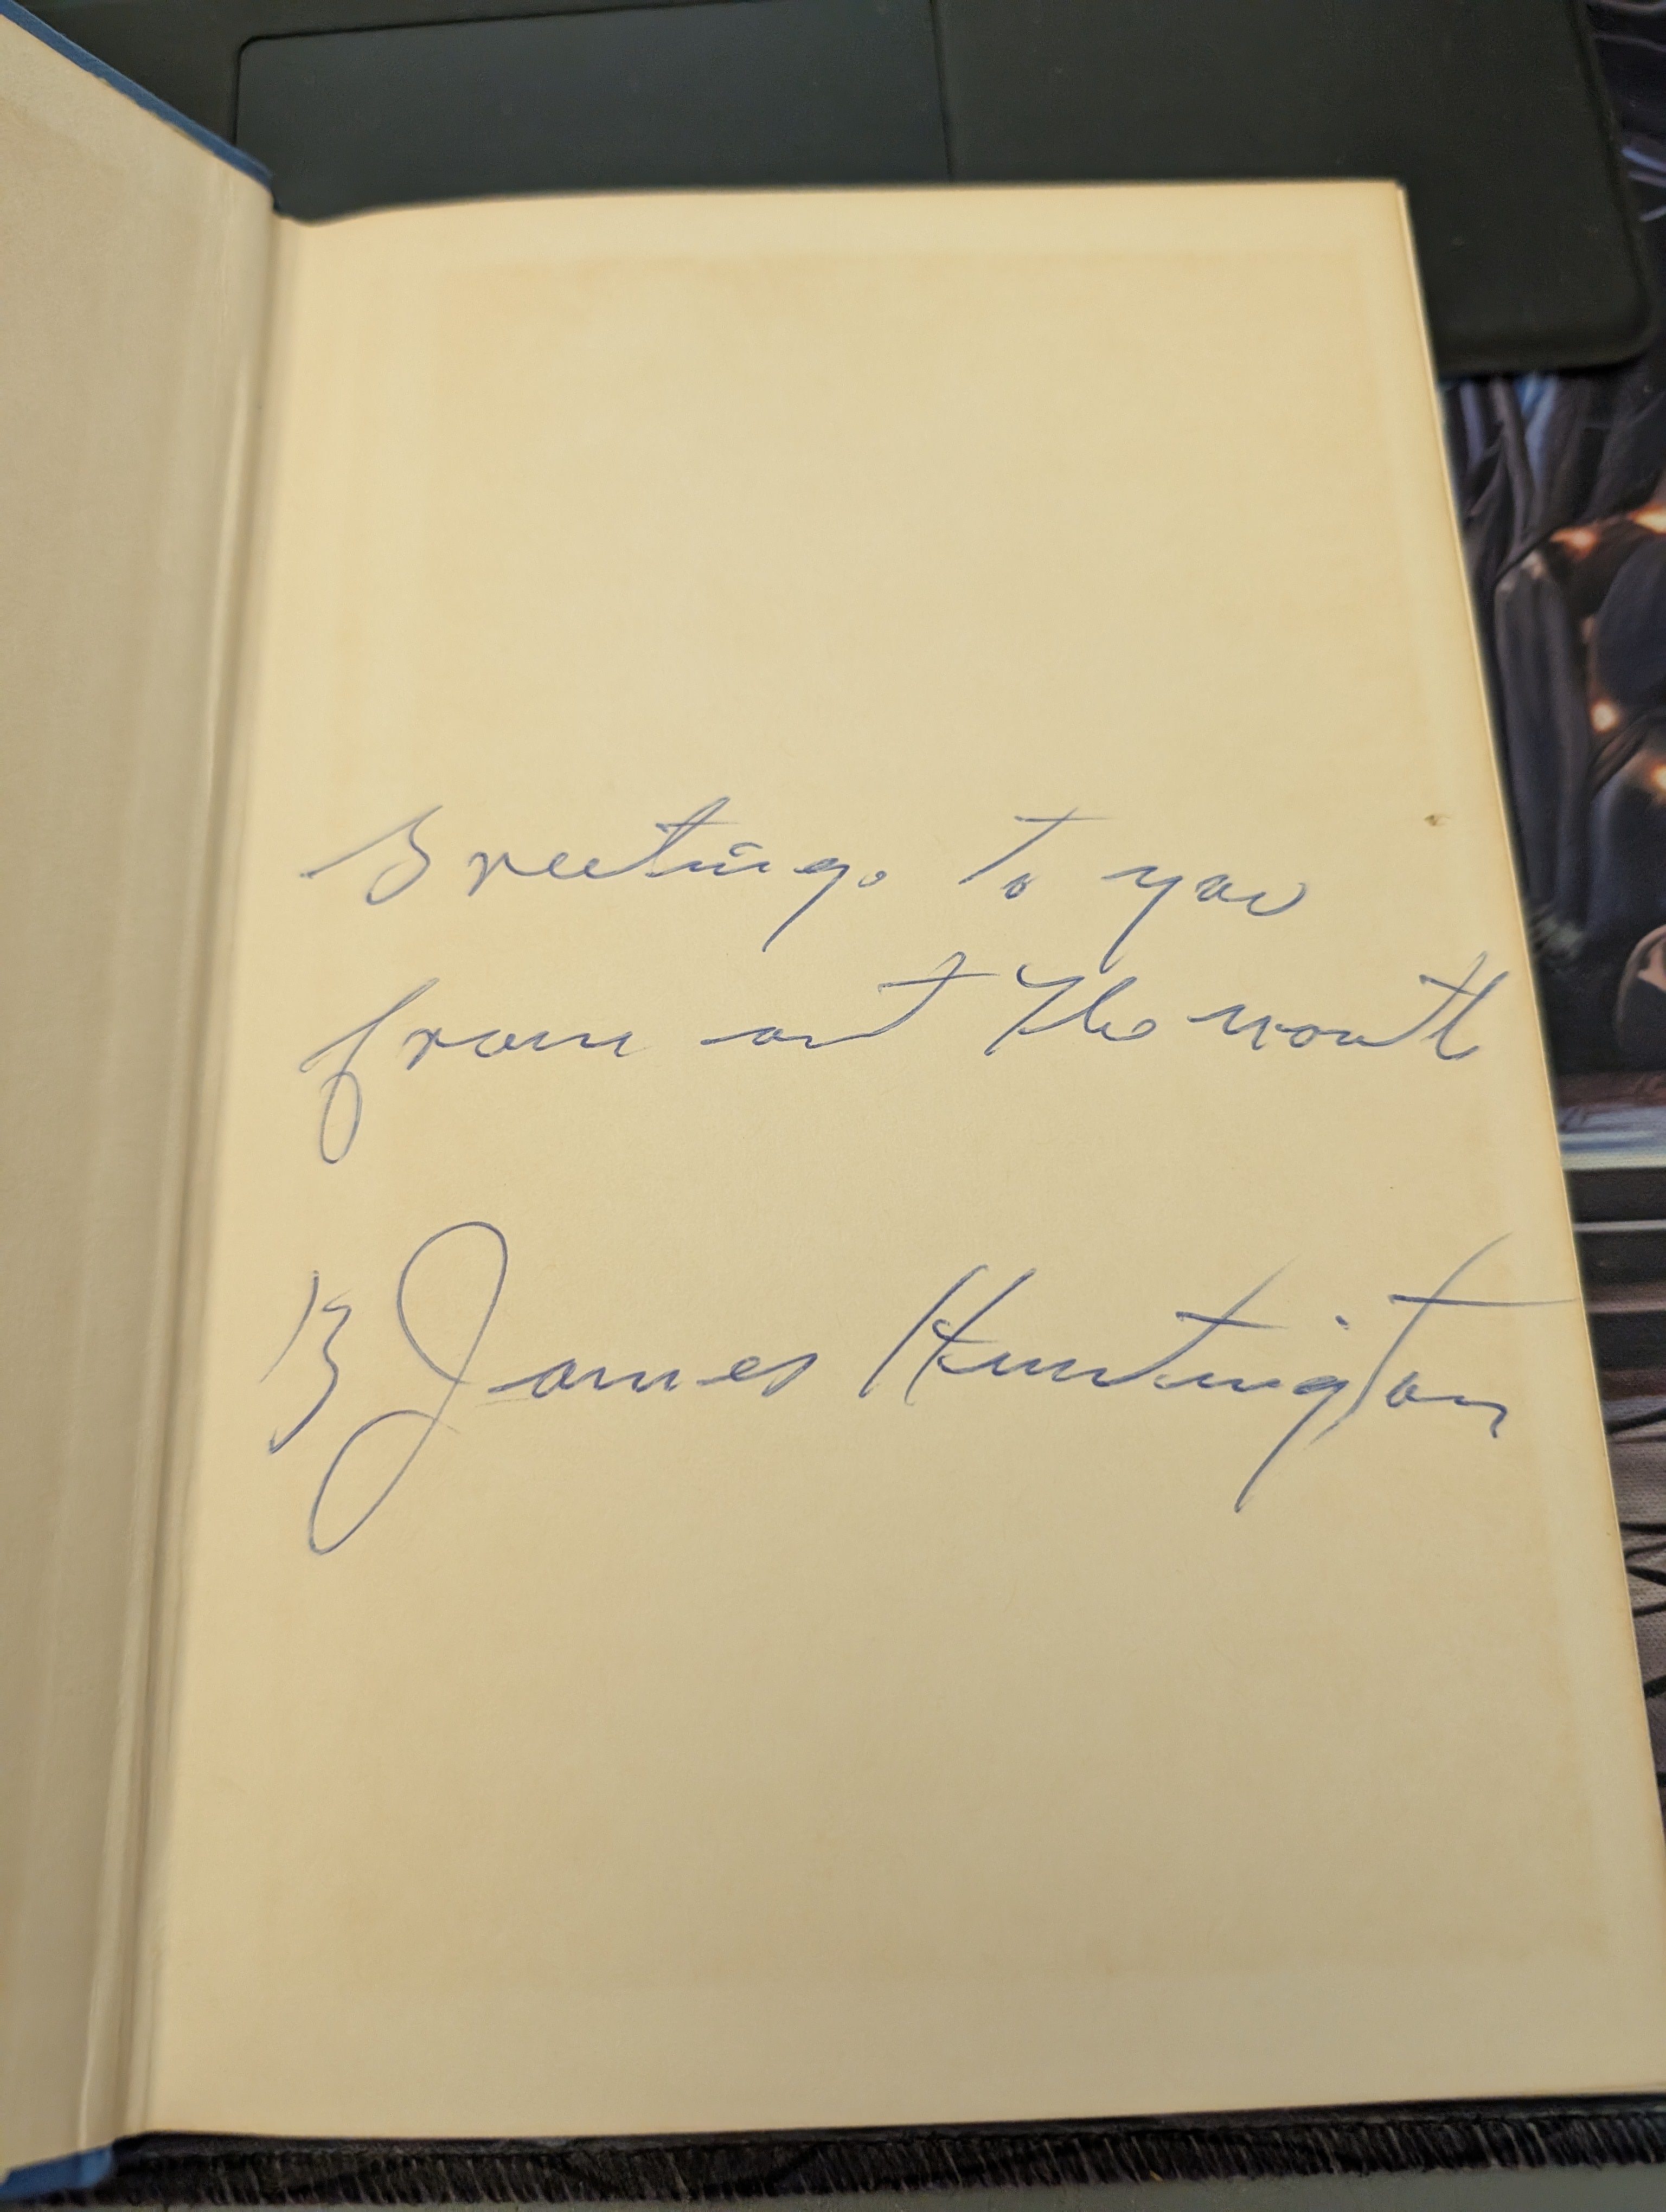 Greetings to you
from out The north
By James Huntington